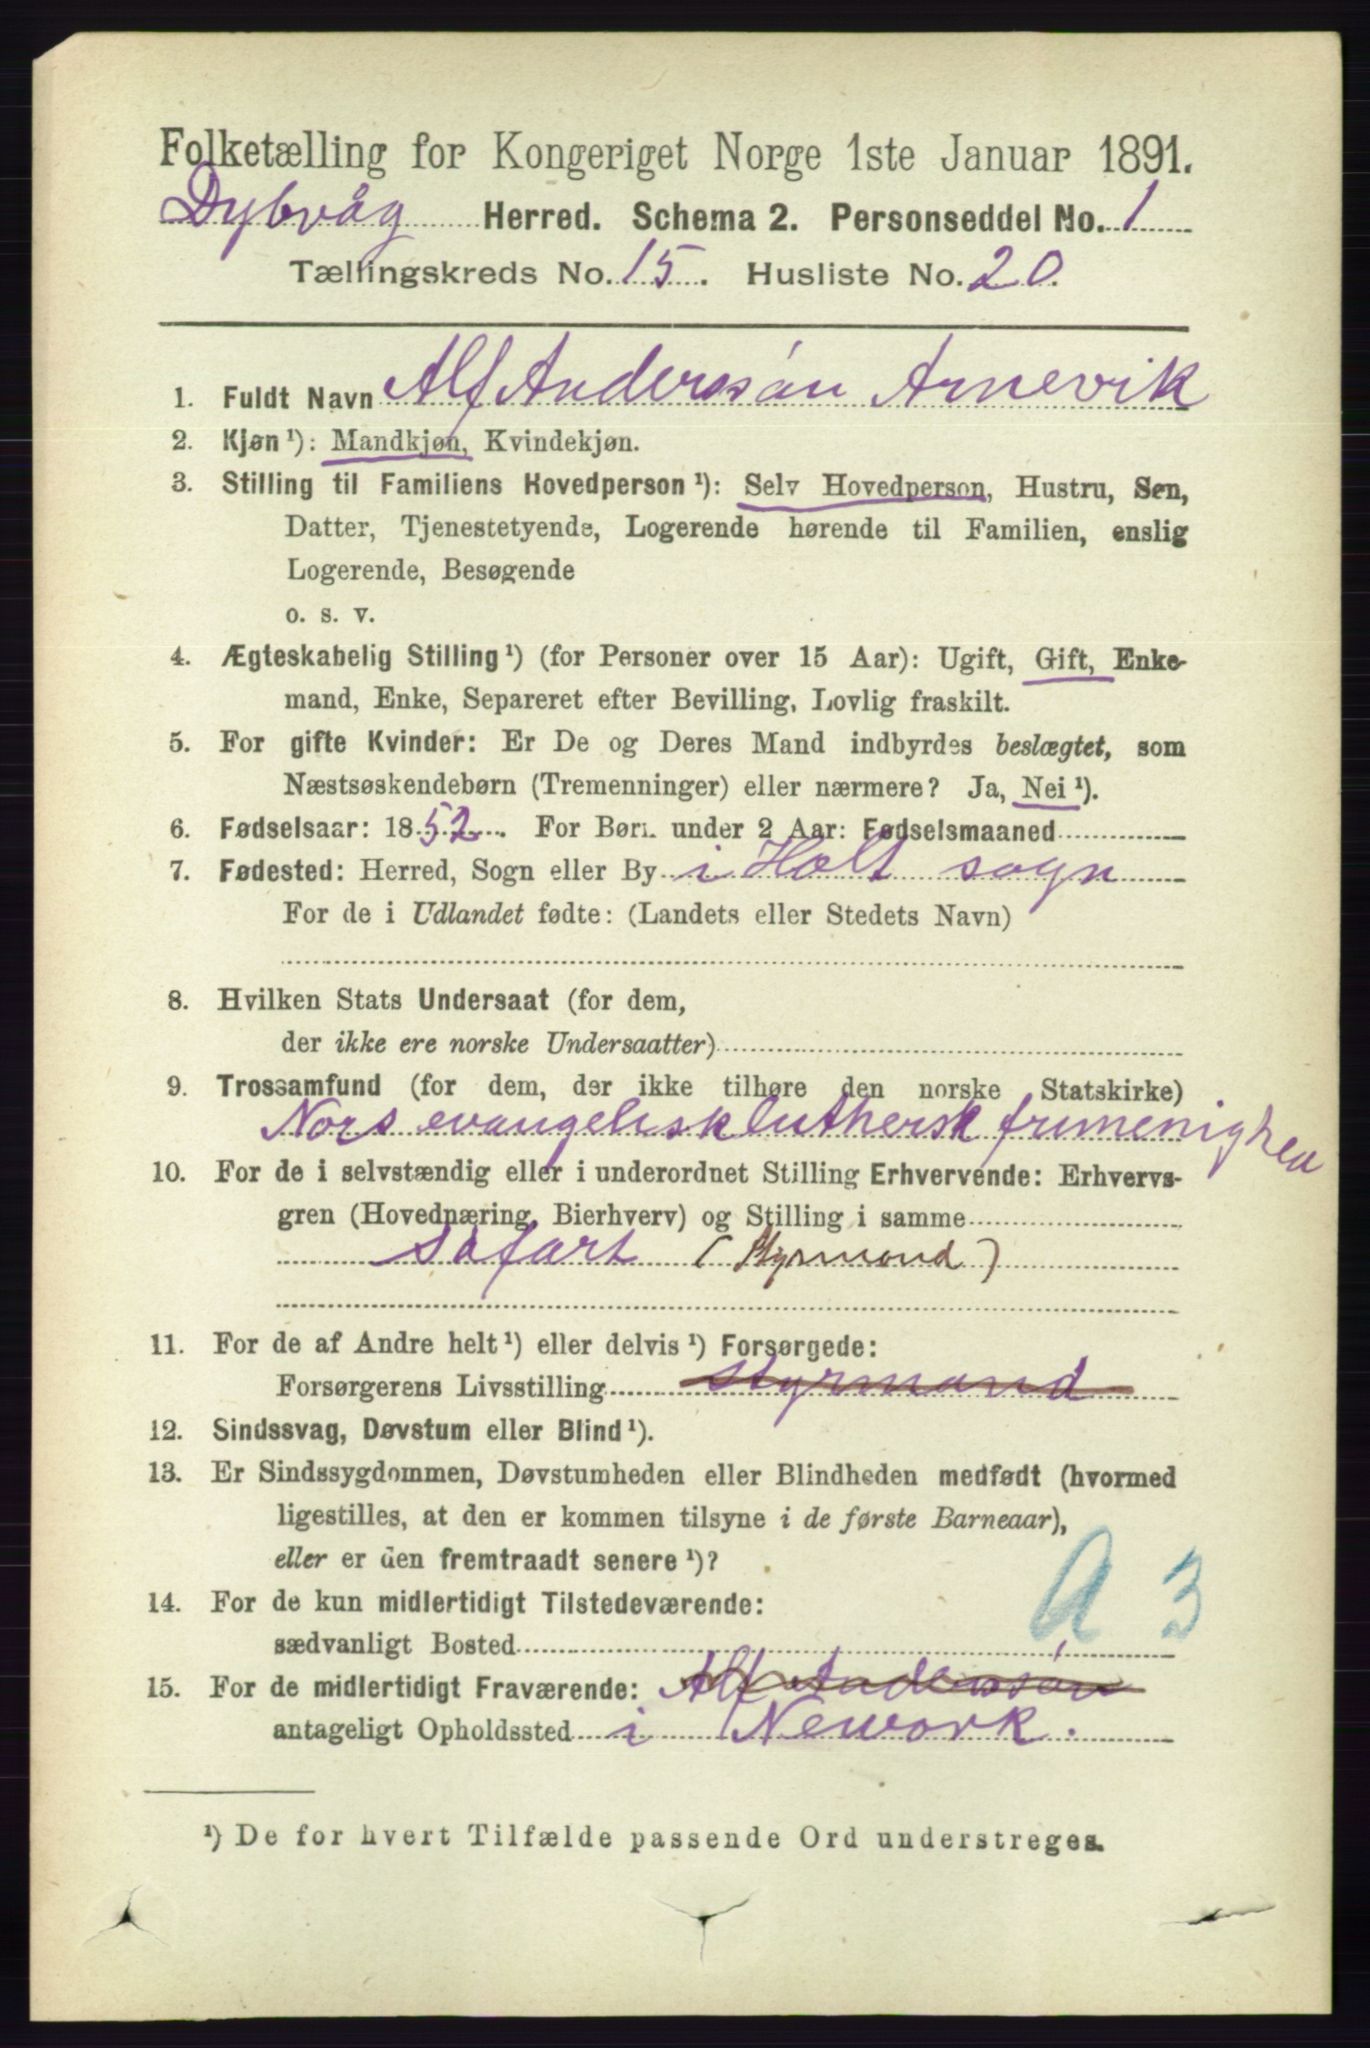 Folketælling for Kongeriget Norge 1ste Januar 1891.
Dybvåg Herred. Schema 2. Personseddel No. 1
Tællingskreds No. 15. Husliste No. 20.
1. Fuldt Navn Alf Anderssón Arnevik
2. Kjøn ¹): Mandkjøn, Kvindekjøn.
3. Stilling til Familiens Hovedperson ¹): Selv Hovedperson, Hustru, Søn,
Datter, Tjenestetyende, Logerende hørende til Familien, enslig
Logerende, Besøgende
o. s. v.
4. Ægteskabelig Stilling ¹) (for Personer over 15 Aar): Ugift, Gift, Enke-
mand, Enke, Separeret efter Bevilling, Lovlig fraskilt.
5. For gifte Kvinder: Er De og Deres Mand indbyrdes beslægtet, som
Næstsøskendebørn (Tremenninger) eller nærmere? Ja, Nei ¹).
6. Fødselsaar: 1852. For Børn under 2 Aar: Fødselsmaaned
7. Fødested: Herred, Sogn eller By i Holt sogn
For de i Udlandet fødte: (Landets eller Stedets Navn)
8. Hvilken Stats Undersaat (for dem,
der ikke ere norske Undersaatter)
9. Trossamfund (for dem, der ikke tilhøre den norske Statskirke)
Nors evangelisk luthersk frimenighed
10. For de i selvstændig eller i underordnet Stilling Erhvervende: Erhvervs-
gren (Hovednæring, Bierhverv) og Stilling i samme
Söfart (Styrmand)
11. For de af Andre helt ¹) eller delvis ¹) Forsørgede:
Forsørgerens Livsstilling styrmand
12. Sindssvag, Døvstum eller Blind ¹).
13. Er Sindssygdommen, Døvstumheden eller Blindheden medfødt (hvormed
ligestilles, at den er kommen tilsyne i de første Barneaar),
eller er den fremtraadt senere ¹)?
14. For de kun midlertidigt Tilstedeværende:
sædvanligt Bosted
A 3
15. For de midlertidigt Fraværende: Alf Anderssón
antageligt Opholdssted i Nework.
¹) De for hvert Tilfælde passende Ord understreges.